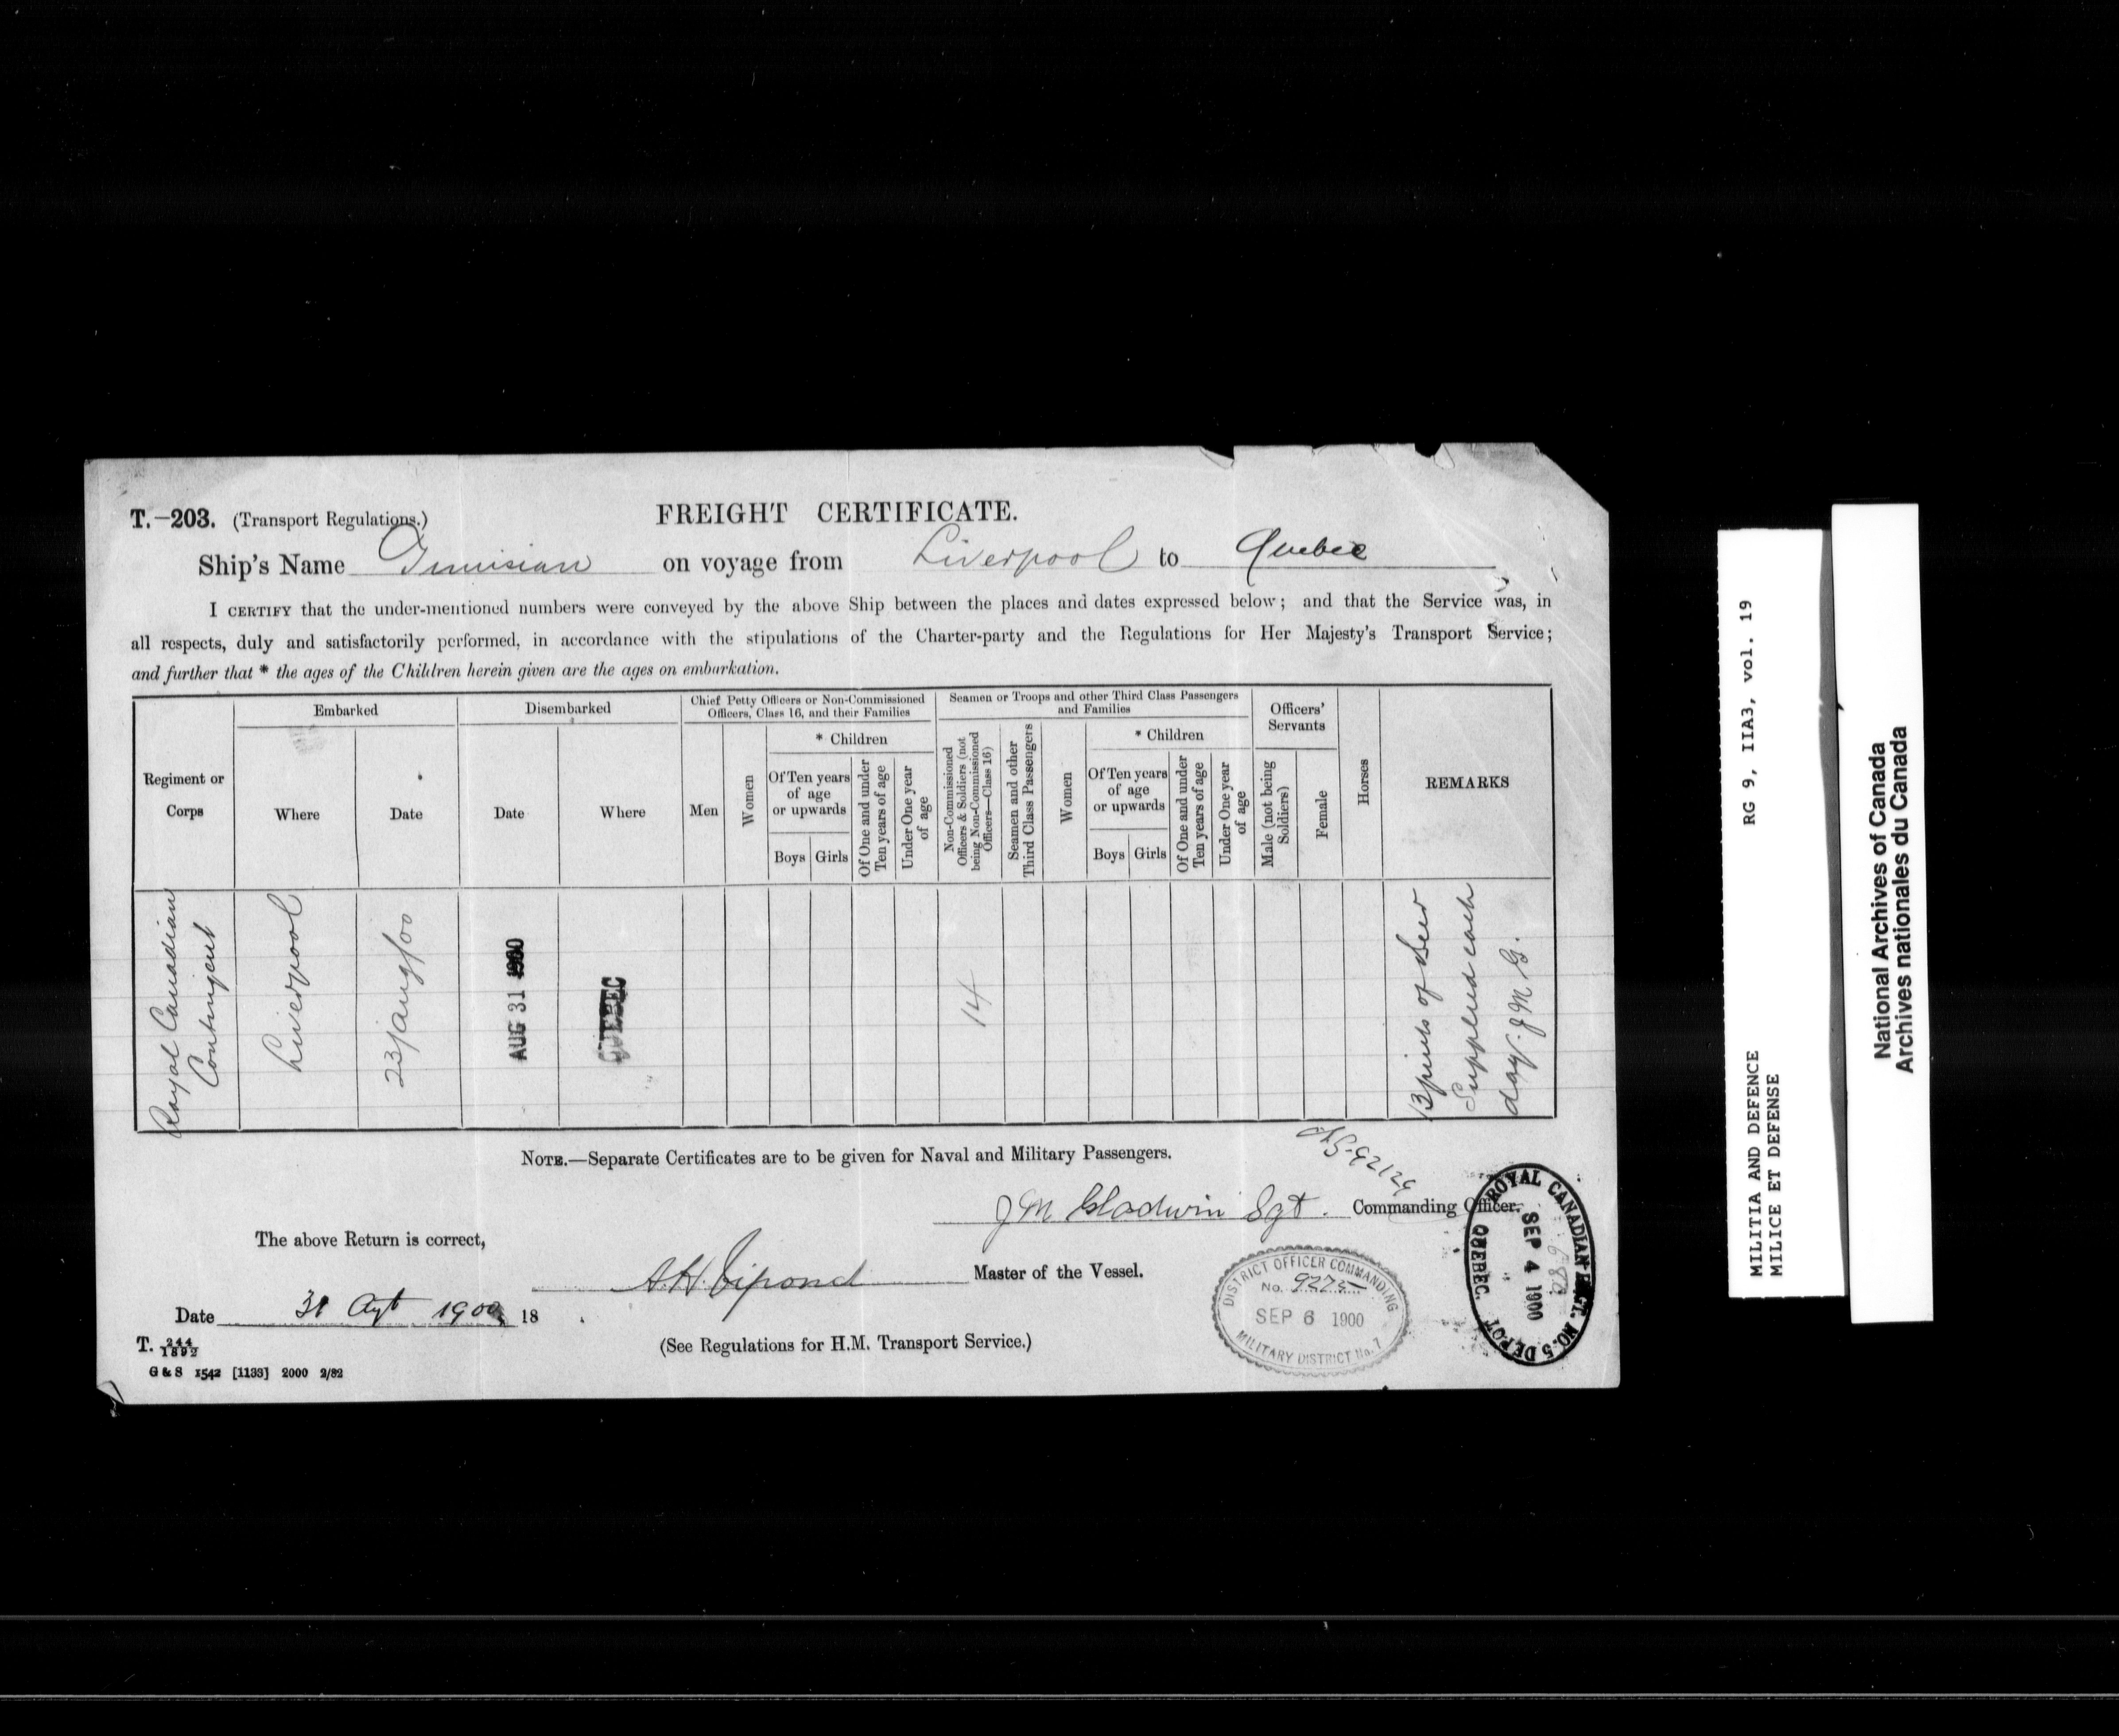 T.—203. (Transport Regulations.)
FREIGHT CERTIFICATE.
Ship's Name Tunisian on voyage from Liverpool to Quebec
I CERTIFY that the under-mentioned numbers were conveyed by the above Ship between the places and dates expressed below; and that the Service was, in
all respects, duly and satisfactorily performed, in accordance with the stipulations of the Charter-party and the Regulations for Her Majesty's Transport Service;
and further that * the ages of the Children herein given are the ages on embarkation.
Regiment or
Corps
Embarked
Where
Date
Disembarked
Date
Where
Chief Petty Officers or Non-Commissioned
Officers, Class 16, and their Families
Men
Women
* Children
Of Ten years
of age
or upwards
Boys
Girls
Of One and under
Ten years of age
Under One year
of age
Seamen or Troops and other Third Class Passengers
and Families
Non-Commissioned
Officers & Soldiers (not
being Non-Commissioned
Officers—Class 16)
Seamen and other
Third Class Passengers
Women
* Children
Of Ten years
of age
or upwards
Boys
Girls
Of One and under
Ten years of age
Under One year
of age
Officers'
Servants
Male (not being
Soldiers)
Female
Horses
REMARKS
Royal Canadian
Contingent
Liverpool
23/aug/00
AUG 31 1900
QUEBEC
14
13 pints of beer
Supplied each
day. J M G.
NOTE.—Separate Certificates are to be given for Naval and Military Passengers.
J M Gladwin Sgt. Commanding Officer.
The above Return is correct,
A. H. Vipond Master of the Vessel.
Date 31 Agt 1900 18
T. 244/1892
(See Regulations for H.M. Transport Service.)
G & S 1542 [1133] 2000 2/82
DISTRICT OFFICER COMMANDING
No. 9275
SEP 6 1900
MILITARY DISTRICT No. 7
ROYAL CANADIAN REGT. NO. 5 DEPOT
SEP 4 1900
QUEBEC.
MILITIA AND DEFENCE RG 9, IIA3, vol. 19
MILICE ET DEFENSE
National Archives of Canada
Archives nationales du Canada